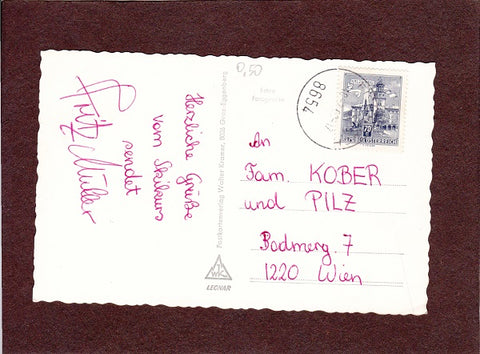 0,50
Herzliche Grüße
vom Skikurs
sendet
Fritz Müller
Echte
Fotografie
Postkartenverlag Walter Kramer, 8055 Graz-Eggenberg
WK
LEGNAR
8654
ÖSTERREICH
An
Fam. KOBER
und PILZ
Badmerg. 7
1220 Wien